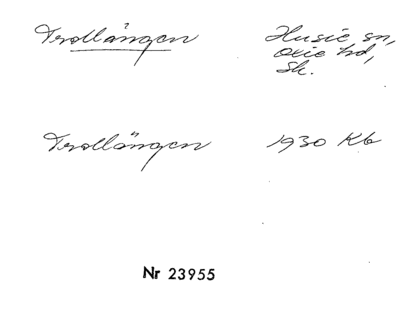 Trollängen Husie sn,
Oxie hd,
Sk.
Trollängen 1930 Kb
Nr 23955